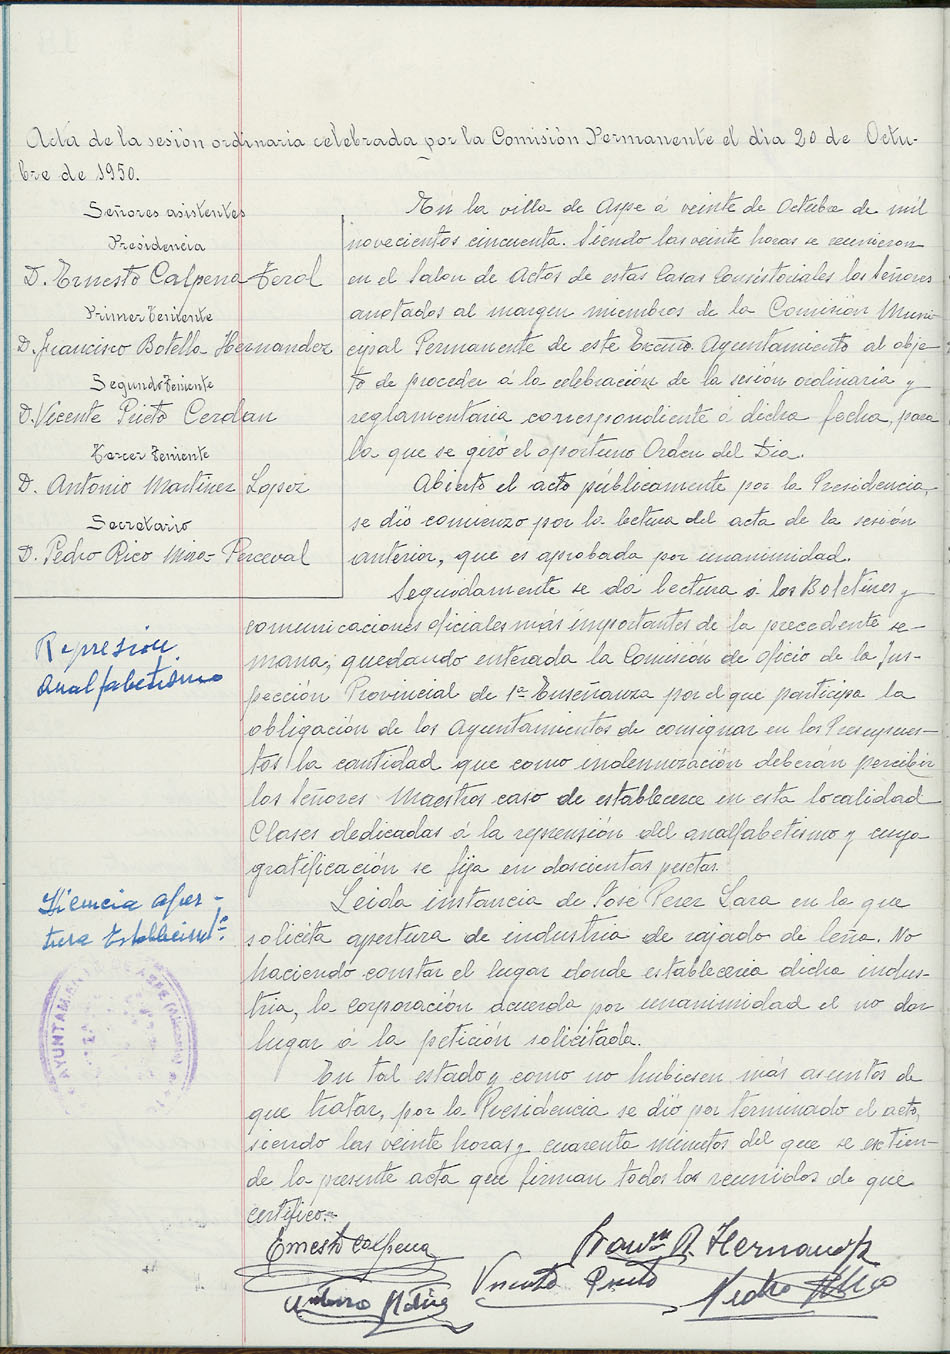 Acta de la sesión ordinaria celebrada por la Comisión Permanente el dia 20 de Octu-
bre de 1950.
Señores asistentes
Presidencia
D. Ernesto Calpena Terol
Primer Teniente
D. Francisco Botella Hernandez
Segundo Teniente
D. Vicente Prieto Cerdan
Tercer Teniente
D. Antonio Martinez Lopez
Secretario
D. Pedro Rico Mira-Perceval
En la villa de Aspe á veinte de Octubre de mil
novecientos cincuenta. Siendo las veinte horas se reunieron
en el Salon de Actos de estas Casas Consistoriales los Señores
anotados al margen miembros de la Comisión Muni-
cipal Permanente de este Excmo. Ayuntamiento al obje-
to de proceder á la celebración de la sesión ordinaria y
reglamentaria correspondiente á dicha fecha, para
la que se giró el oportuno Orden del Dia.
Abierto el acto públicamente por la Presidencia,
se dió comienzo por la lectura del acta de la sesión
anterior, que es aprobada por unanimidad.
Seguidamente se dá lectura á los Boletines y
comunicaciones oficiales más importantes de la precedente se-
mana; quedando enterada la Comisión de oficio de la Ins-
pección Provincial de 1ª Enseñanza por el que participa la
obligación de los Ayuntamientos de consignar en los Presupues-
tos la cantidad que como indennización deberán percibir
los Señores Maestros caso de establecerse en esta localidad
Clases dedicadas á la reprensión del analfabetismo y cuya
gratificación se fija en doscientas pesetas.
Represión
analfabetismo
Leida instancia de José Perez Lara en la que
solicita apertura de industria de rajado de leña. No
haciendo constar el lugar donde estableceria dicha indus-
tria, la corporación acuerda por unanimidad el no dar
lugar á la petición solicitada.
Licencia aper-
tura Establecimtº.
AYUNTAMIENTO DE ASPE
En tal estado y como no hubiesen más asuntos de
que tratar, por la Presidencia se dió por terminado el acto,
siendo las veinte horas y cuarenta minutos del que se extien-
de la presente acta que firman todos los reunidos de que
certifico.-
Ernesto Calpena
Hernandez
Vicente Prieto
Pedro Rico